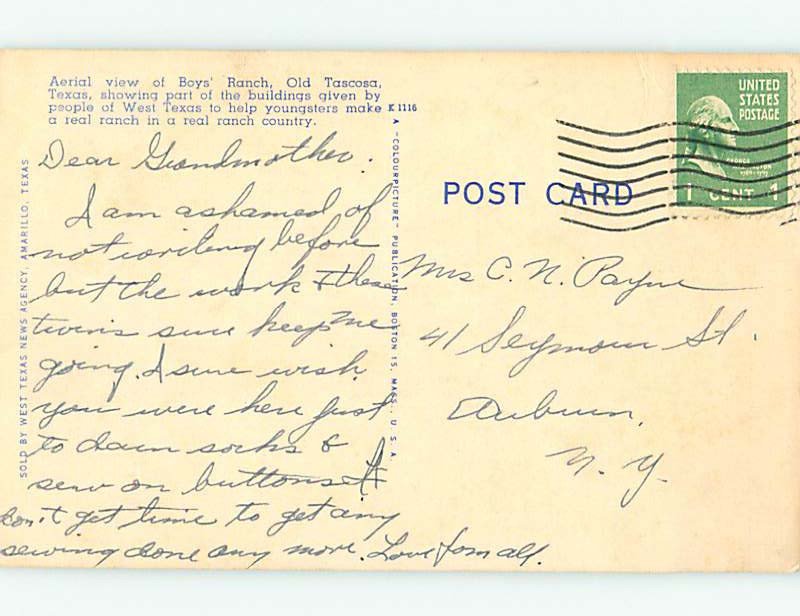 Aerial view of Boys' Ranch, Old Tascosa,
Texas, showing part of the buildings given by
people of West Texas to help youngsters make
a real ranch in a real ranch country.
K 1116
SOLD BY WEST TEXAS NEWS AGENCY, AMARILLO, TEXAS
A "COLOURPICTURE" PUBLICATION, BOSTON 15, MASS., U.S.A.
Dear Grandmother.
I am ashamed of
not writing before
but the work & these
twins sure keep me
going. I sure wish
you were here just
to darn socks &
sew on buttons. I
don't get time to get any
sewing done any more. Love from all.
POST CARD
UNITED
STATES
POSTAGE
GEORGE
WASHINGTON
1 CENT 1
Mrs C. N. Payne
41 Seymour St.
Auburn,
N. Y.